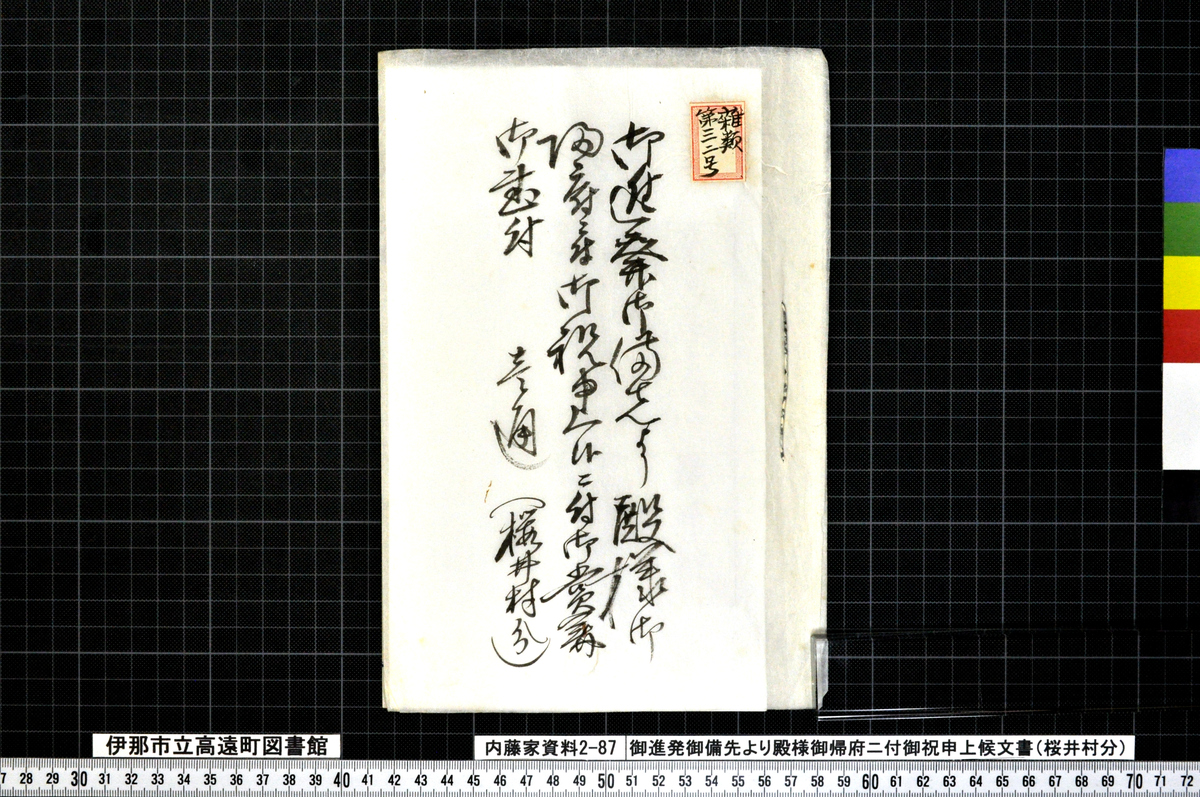 雑類
第三二号
御進発御備先より殿様御
帰府ニ付御祝申上候ニ付御賞
御書付 壱通 (桜井村分)
伊那市立高遠町図書館
内藤家資料2-87 御進発御備先より殿様御帰府ニ付御祝申上候文書(桜井村分)
7 28 29 30 31 32 33 34 35 36 37 38 39 40 41 42 43 44 45 46 47 48 49 50 51 52 53 54 55 56 57 58 59 60 61 62 63 64 65 66 67 68 69 70 71 72